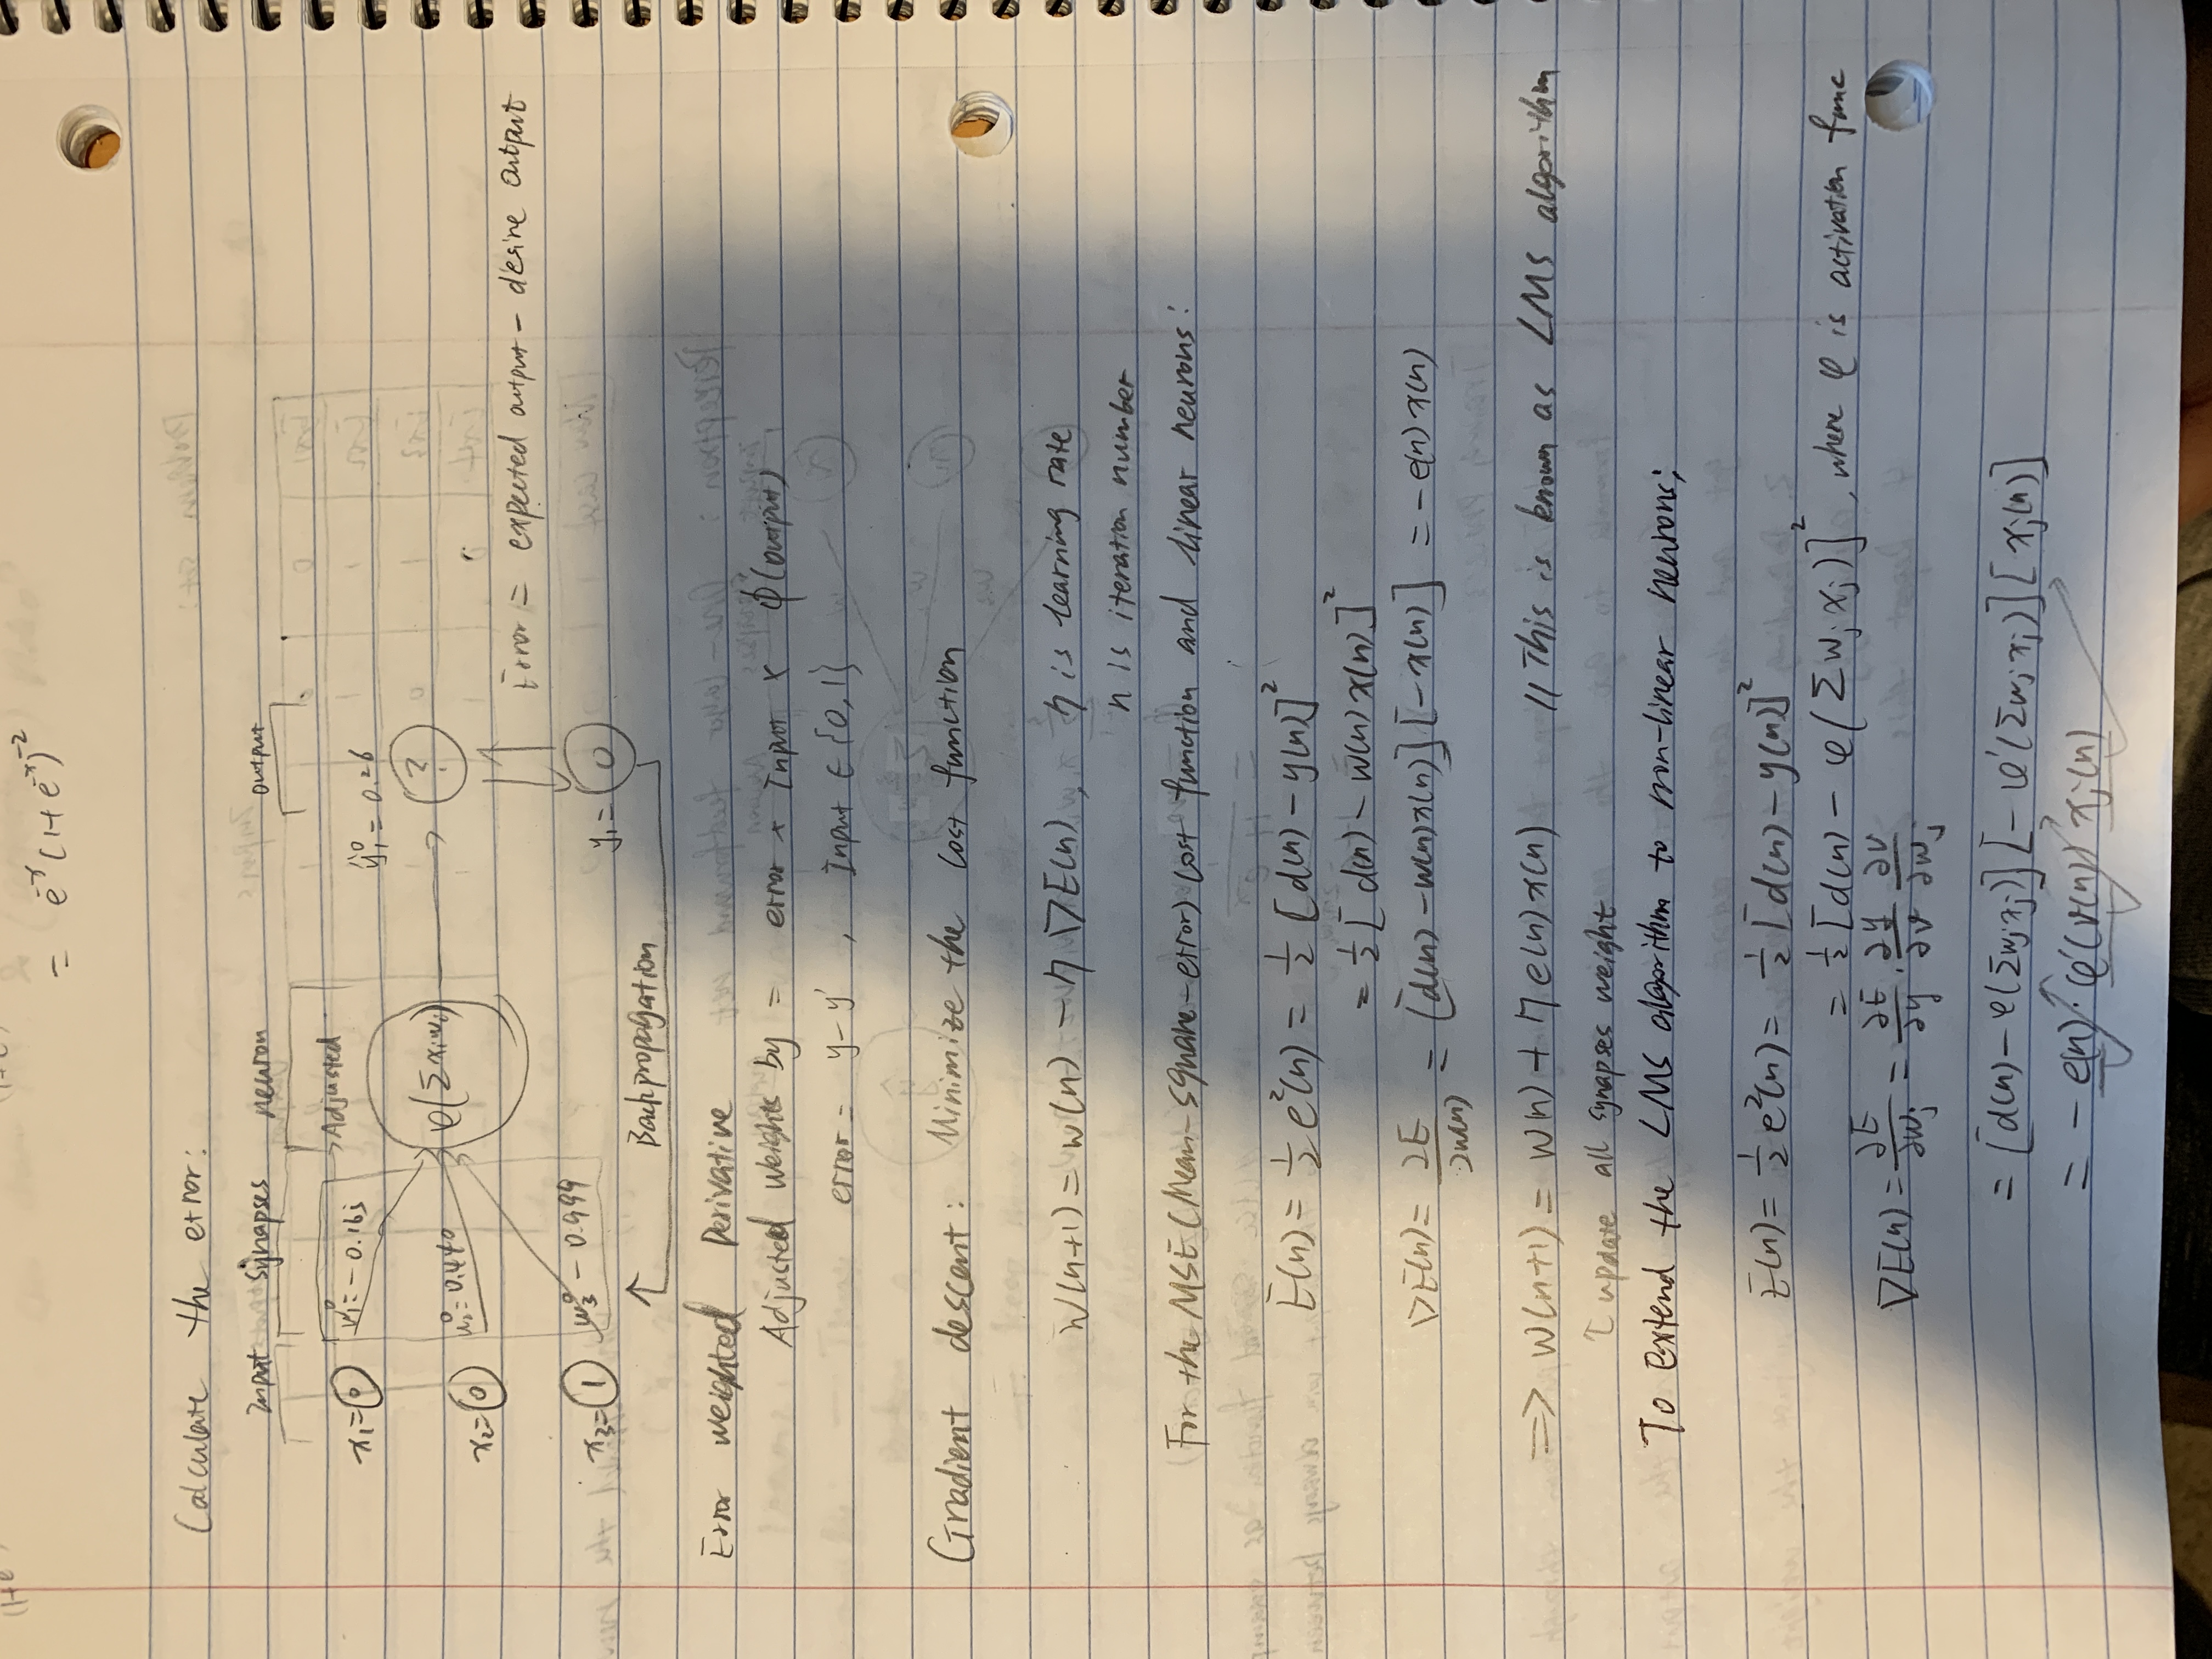 = e^-x (1+e^-x)^-2
Calculate the error:
Input Synapses neuron output
→Adjusted
x₁= 0 w₁⁰= -0.165
ŷ₁⁰ = 0.26
φ(Σxᵢwᵢ) ?
x₂= 0 w₂⁰= 0.440
Error = expected output - desire output
x₃= 1 w₃⁰ -0.999 y₁= 0
Backpropagation
Error weighted Derivative
Adjusted Weights by = error × Input × φ'(output)
error = y-y' , Input ∈ {0,1}
Gradient descent: Minimize the cost function
W(n+1) = w(n) - η ∇E(n), η is learning rate
n is iteration number
For the MSE (Mean-square-error) cost function and linear neurons:
E(n) = 1/2 e²(n) = 1/2 [d(n) - y(n)]²
= 1/2 [d(n) - w(n)x(n)]²
∇E(n) = ∂E/∂w(n) = [d(n) - w(n)x(n)][-x(n)] = -e(n)x(n)
=> W(n+1) = W(n) + η e(n)x(n) // This is known as LMS algorithm
↑ update all synapses weight
To extend the LMS algorithm to non-linear neurons;
E(n) = 1/2 e²(n) = 1/2 [d(n) - y(n)]²
= 1/2 [d(n) - φ(Σwⱼxⱼ)]², where φ is activation func
∇E(n) = ∂E/∂wⱼ = ∂E/∂y · ∂y/∂v ∂v/∂wⱼ
= [d(n) - φ(Σwⱼxⱼ)][-φ'(Σwⱼxⱼ)][xⱼ(n)]
= -e(n)·φ'(v(n)) xⱼ(n)